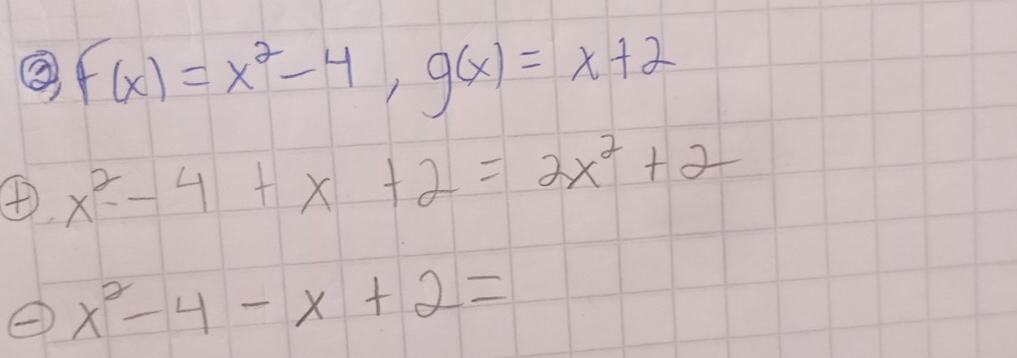 ② f(x) = x² - 4 , g(x) = x + 2
⊕ x² - 4 + x + 2 = 2x² + 2
⊖ x² - 4 - x + 2 =